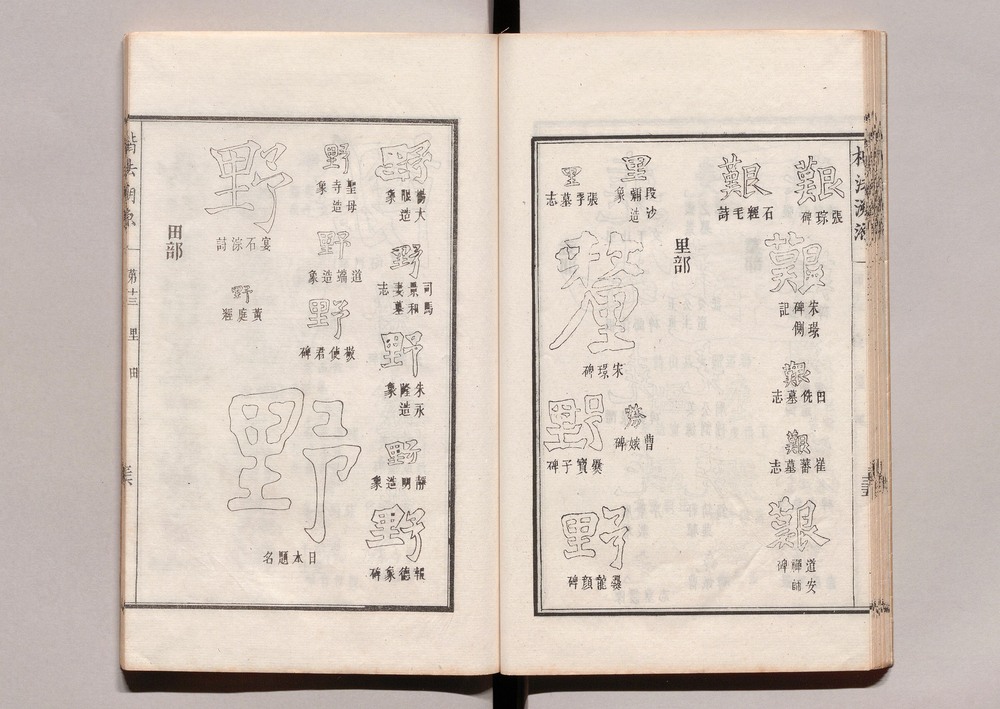 艱
張琮碑
艱
朱璟
碑側
記
艱
田侁墓志
艱
崔蕃墓志
艱
道安
禪師
碑
艱
石經毛詩
里部
里
段沙
彌造
象
釐
曹娥碑
里
張季墓志
釐
宋璟碑
野
爨寶子碑
野
爨龍顏碑
野
楊大
眼造
象
野
司馬
景和
妻墓
志
野
朱永
隆造
象
野
靜明造象
野
報德象碑
野
聖母
寺造
象
野
道端造象
野
敬使君碑
野
日本題名
野
宴石淙詩
野
黃庭經
田部
楷法溯源
第十三
里
田